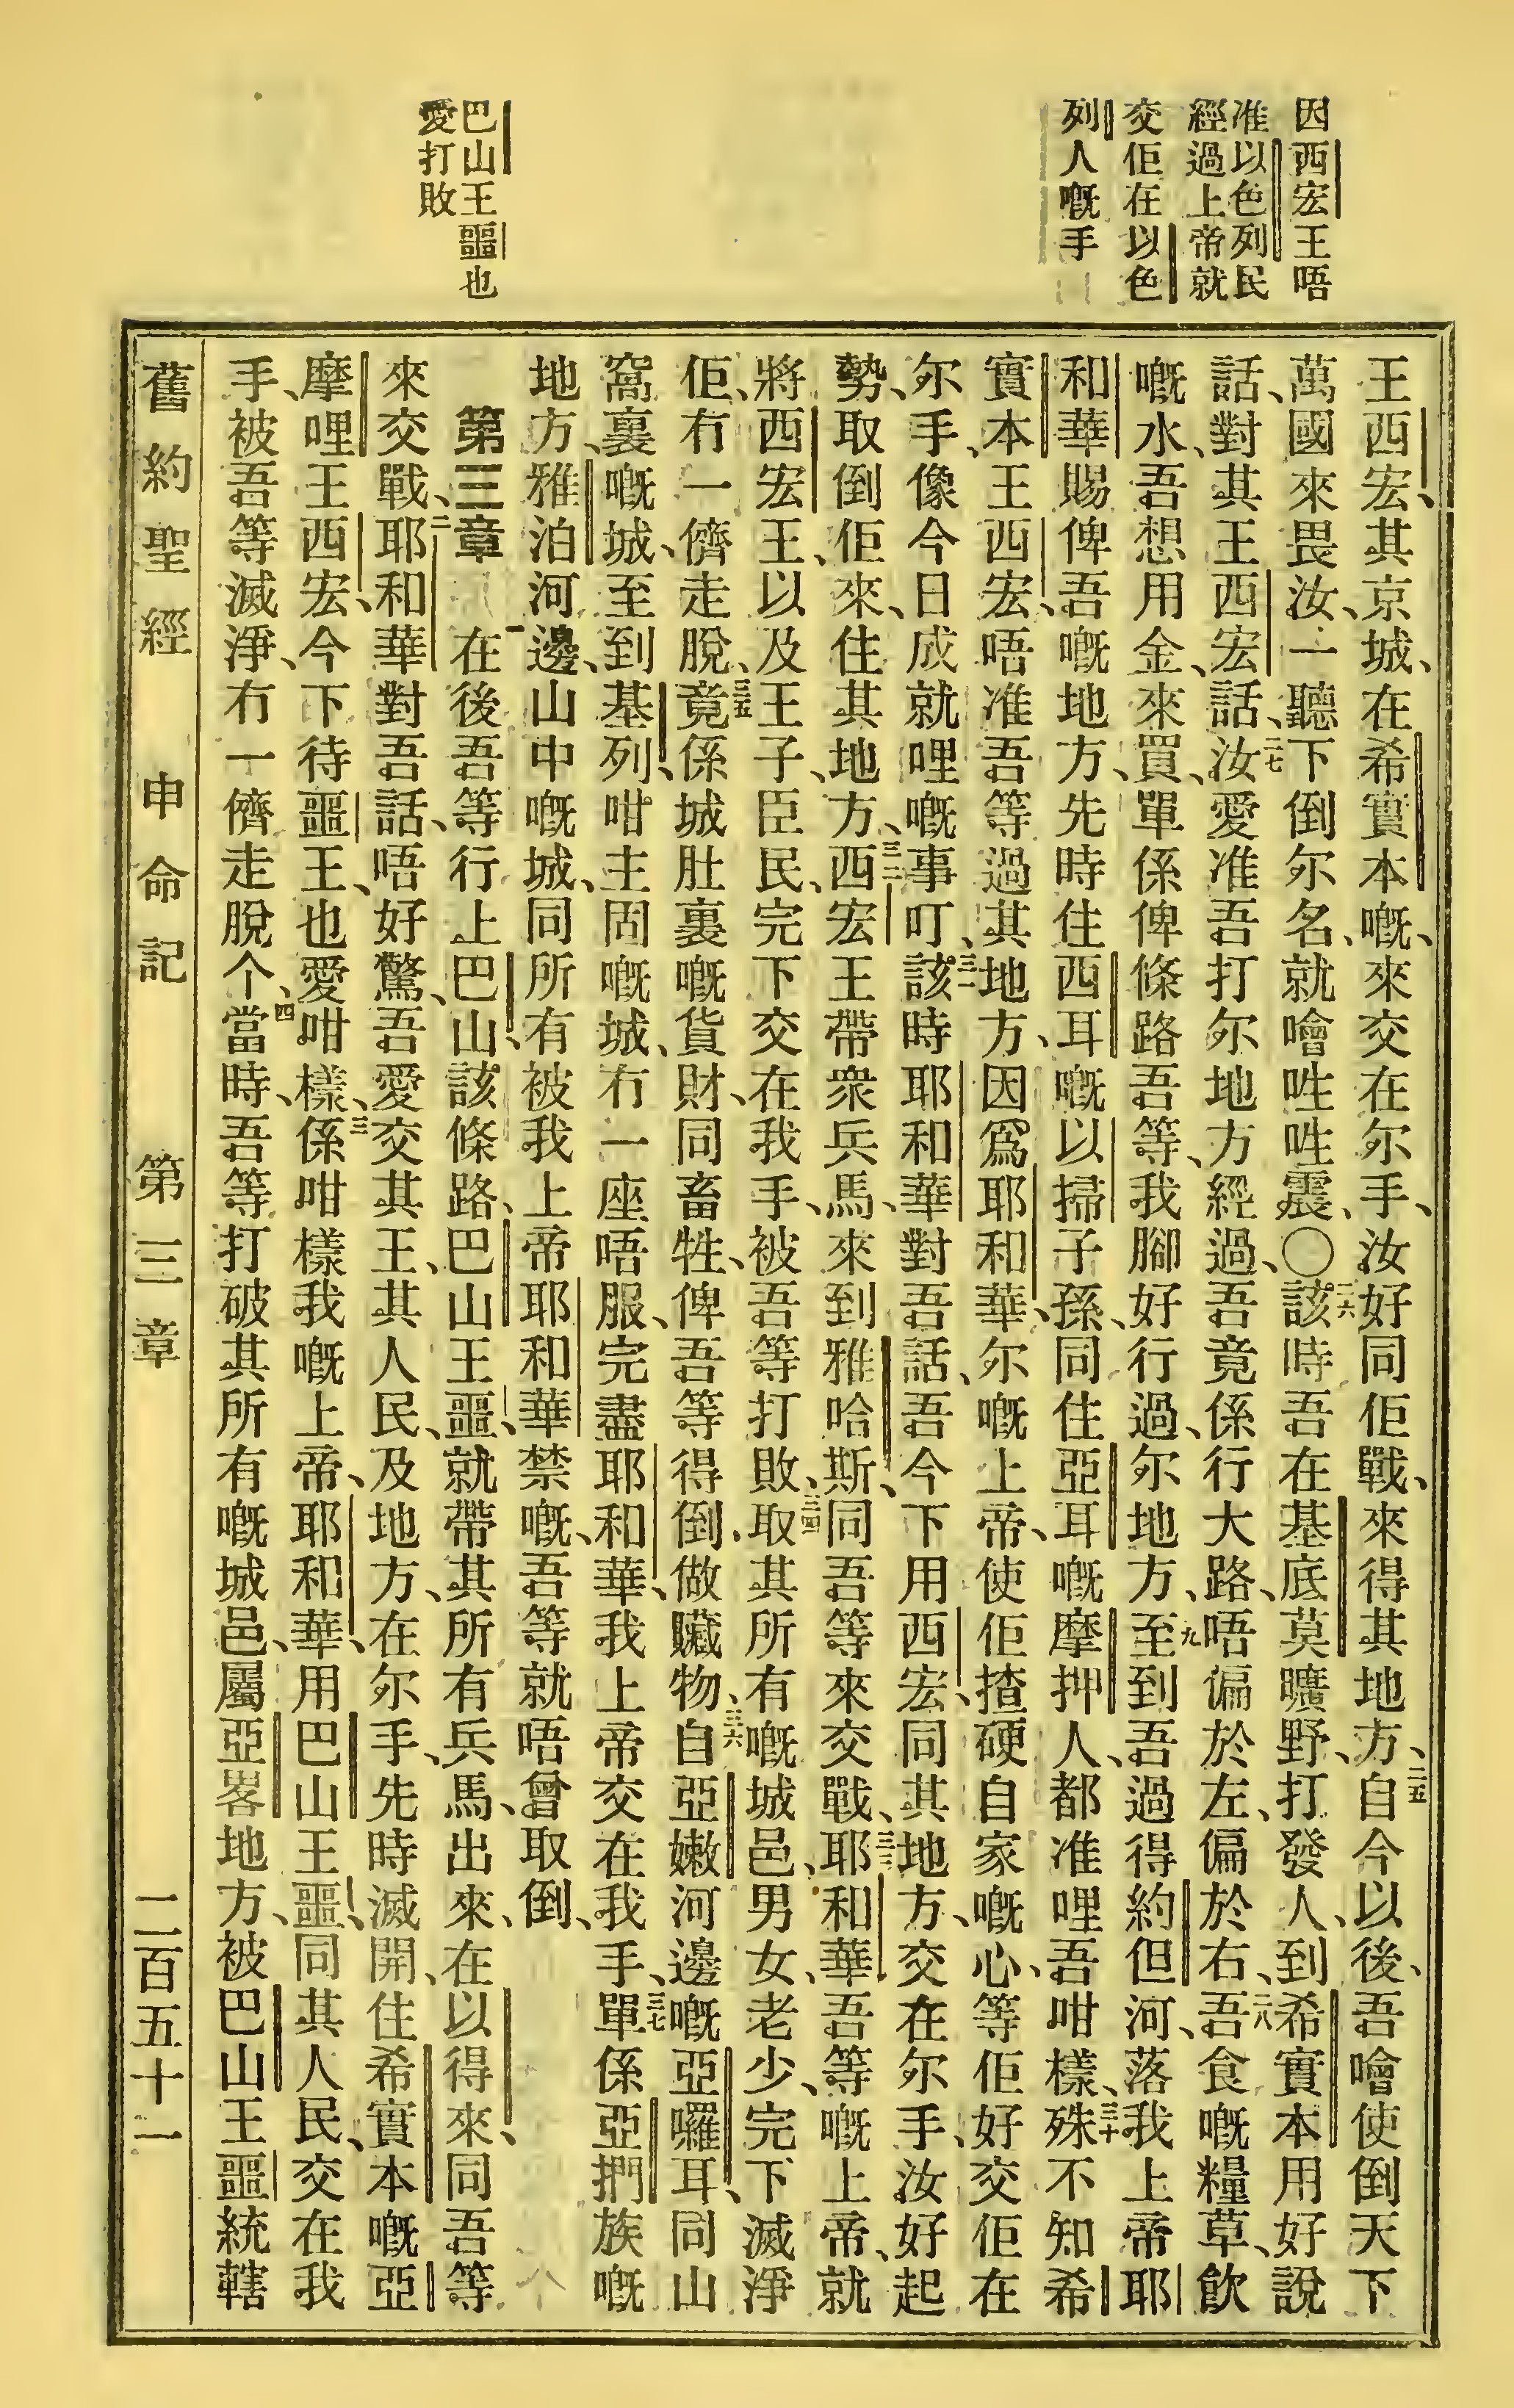 因西宏王唔
准以色列民
經過上帝就
交佢在以色
列人嘅手
巴山王噩也
愛打敗
王西宏、其京城、在希實本嘅、來交在尔手、汝好同佢戰、來得其地方、二五自今以後、吾噲使倒天下
萬國來畏汝、一聽下倒尔名、就噲甡甡震、〇二六該時吾在基底莫曠野、打發人、到希實本用好說
話、對其王西宏話、二七汝愛准吾打尔地方經過、吾竟係行大路、唔偏於左、偏於右、二八吾食嘅糧草、飲
嘅水、吾想用金、來買、單係俾條路吾等、我腳好行過、尔地方、九至到吾過得約但河、落我上帝耶
和華賜俾吾嘅地方、先時住西耳嘅以掃子孫、同住亞耳嘅摩押人、都准哩吾咁樣、三十殊不知希
實本王西宏、唔准吾等過其地方、因爲耶和華、尔嘅上帝、使佢揸硬自家嘅心、等佢好交佢在
尔手、像今日成就哩嘅事叮、三一該時耶和華對吾話、吾今下用西宏、同其地方、交在尔手、汝好起
勢、取倒佢來、住其地方、三二西宏王帶衆兵馬、來到雅哈斯、同吾等來交戰、三三耶和華吾等嘅上帝、就
將西宏王、以及王子、臣民、完下交在我手、被吾等打敗、三四取其所有嘅城邑、男女、老少、完下滅淨
佢、冇一儕走脫、三五竟係城肚裏嘅貨財、同畜牲、俾吾等得倒、做贜物、三六自亞嫩河邊嘅亞囉耳、同山
窩裏嘅城、至到基列、咁主固嘅城、冇一座唔服、完盡耶和華、我上帝交在我手、三七單係亞捫族嘅
地方、雅泊河邊、山中嘅城、同所有被我上帝耶和華禁嘅、吾等就唔曾取倒、
第三章 一在後吾等行上巴山、該條路、巴山王噩、就帶其所有兵馬、出來、在以得來、同吾等
來交戰、二耶和華對吾話、唔好驚、吾愛交其王、其人民、及地方、在尔手、先時滅開、住希實本嘅亞
摩哩王西宏、今下待噩王、也愛咁樣、三係咁樣我嘅上帝、耶和華、用巴山王噩、同其人民、交在我
手、被吾等滅淨、冇一儕走脫个、四當時、吾等打破其所有嘅城邑、屬亞畧地方、被巴山王噩統轄
舊約聖經 申命記 第三章 二百五十一